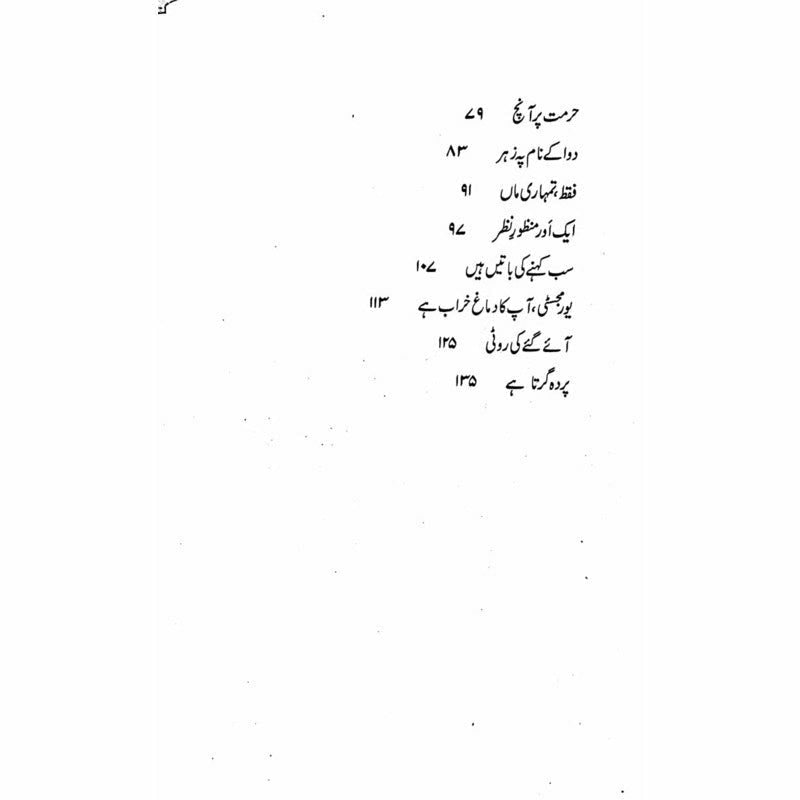 حرمت پر آنچ ۷۹
دوا کے نام پہ زہر ۸۳
فقط، تمہاری ماں ۹۱
ایک اَور منظورِ نظر ۹۷
سب کہنے کی باتیں ہیں ۱۰۷
یور مجسٹی، آپ کا دماغ خراب ہے ۱۱۳
آئے گئے کی روٹی ۱۲۵
پردہ گرتا ہے ۱۳۵